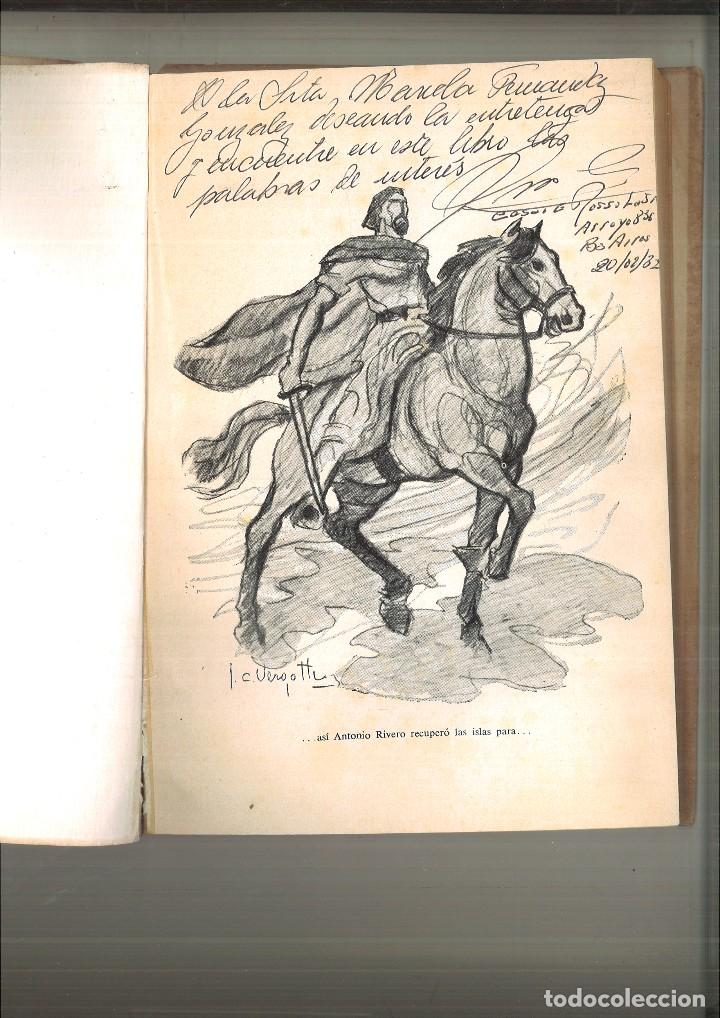 A la Srta Manola Fernandez
Gonzalez deseando la entretenga
y encuentre en este libro las
palabras de interés
Arroyo 8
Bs Aires
20/02/82
J. C. Vergotti
...así Antonio Rivero recuperó las islas para...
todocoleccion.net